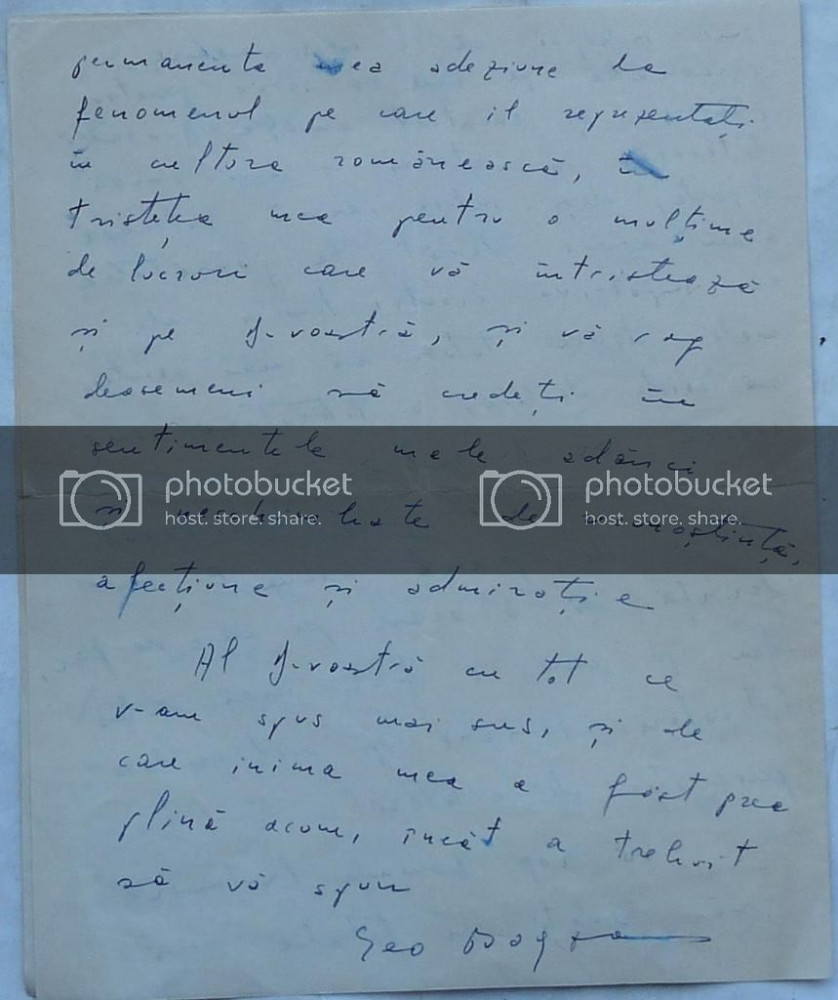 permanenta mea adeziune la
fenomenul pe care il reprezentați
în cultura românească, în
tristețea mea pentru o mulțime
de lucruri care vă întristează
și pe D-voastră, și vă rog
deasemeni să credeți în
sentimentele mele adânci
photobucket photobucket
host. store. share. host. store. share.
și neschimbate de cunoștință,
afecțiune și admirație
Al D-voastră cu tot ce
v-am spus mai sus, și de
care inima mea a fost prea
plină acum, încât a trebuit
să vă spun
Geo Bogza